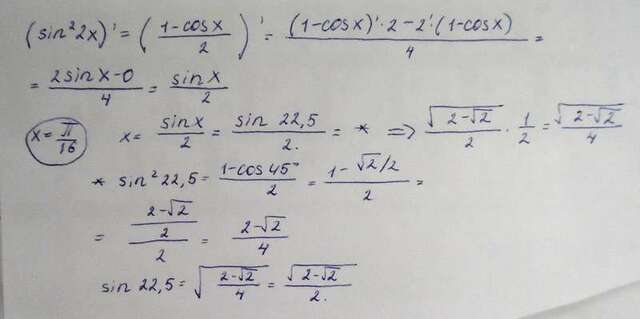 (sin²2x)' = ( (1-cosx)/2 )' = ((1-cosx)'·2-2'·(1-cosx))/4 =
= (2sinx-0)/4 = sinx/2
x=π/16 x= sinx/2 = sin 22,5/2. = * => √(2-√2)/2 · 1/2 = √(2-√2)/4
* sin²22,5 = (1-cos45°)/2 = (1-√2/2)/2 =
= ((2-√2)/2)/2 = (2-√2)/4
sin 22,5 = √((2-√2)/4) = √(2-√2)/2.